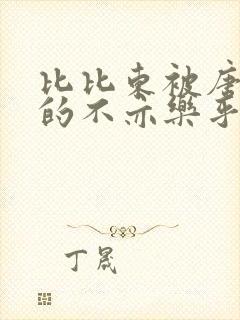 比比东被唐
的不亦乐乎
丁晟